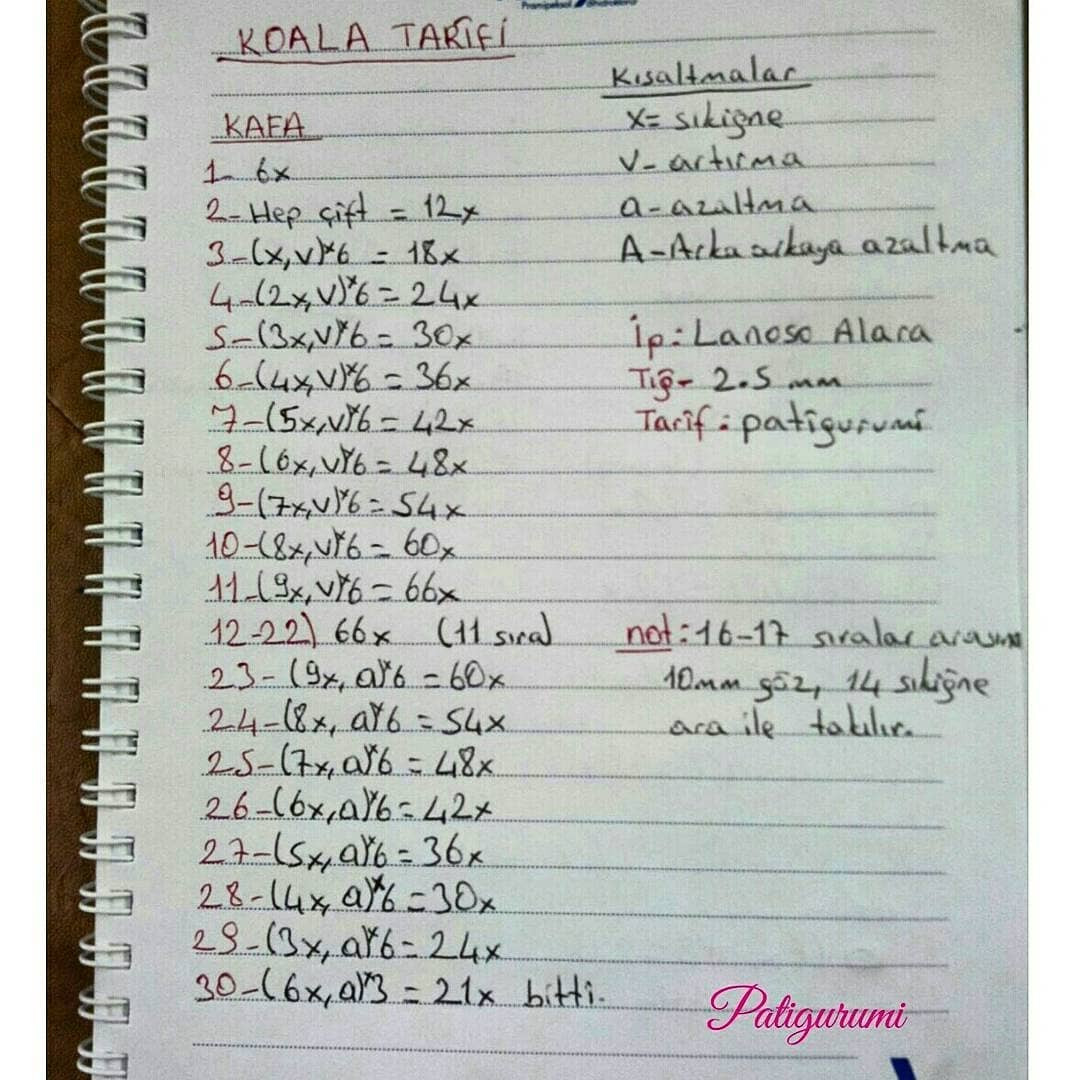 KOALA TARİFİ
Kısaltmalar
KAFA
x= sıkiğne
V- artırma
a- azaltma
A-Arka arkaya azaltma
1- 6x
2- Hep çift = 12x
3-(x,v)*6 = 18x
4-(2x,v)*6 = 24x
5-(3x,v)*6 = 30x
6-(4x,v)*6 = 36x
7-(5x,v)*6 = 42x
8-(6x,v)*6 = 48x
9-(7x,v)*6 = 54x
10-(8x,v)*6 = 60x
11-(9x,v)*6 = 66x
12-22) 66x (11 sıra)
23- (9x, a)*6 = 60x
24-(8x, a)*6 = 54x
25-(7x,a)*6 = 48x
26-(6x,a)*6 = 42x
27-(5x,a)*6 = 36x
28-(4x, a)*6 = 30x
29-(3x, a)*6 = 24x
30-(6x,a)*3 = 21x bitti.
İp: Lanoso Alara
Tığ- 2.5 mm
Tarif: patigurumi
not: 16-17 sıralar arasına
10mm göz, 14 sıkiğne
ara ile takılır.
Patigurumi